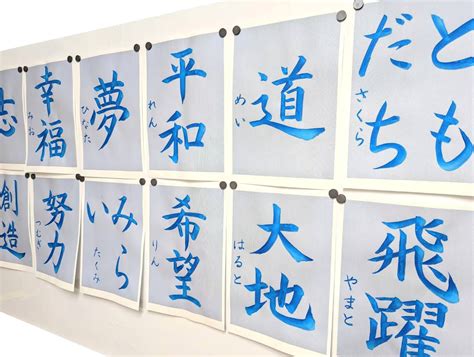 とも
だち
さくら
道
めい
平和
れん
夢
ひなた
幸福
みお
志
飛躍
やまと
大地
はると
希望
りん
みら
い
たくみ
努力
つむぎ
創造